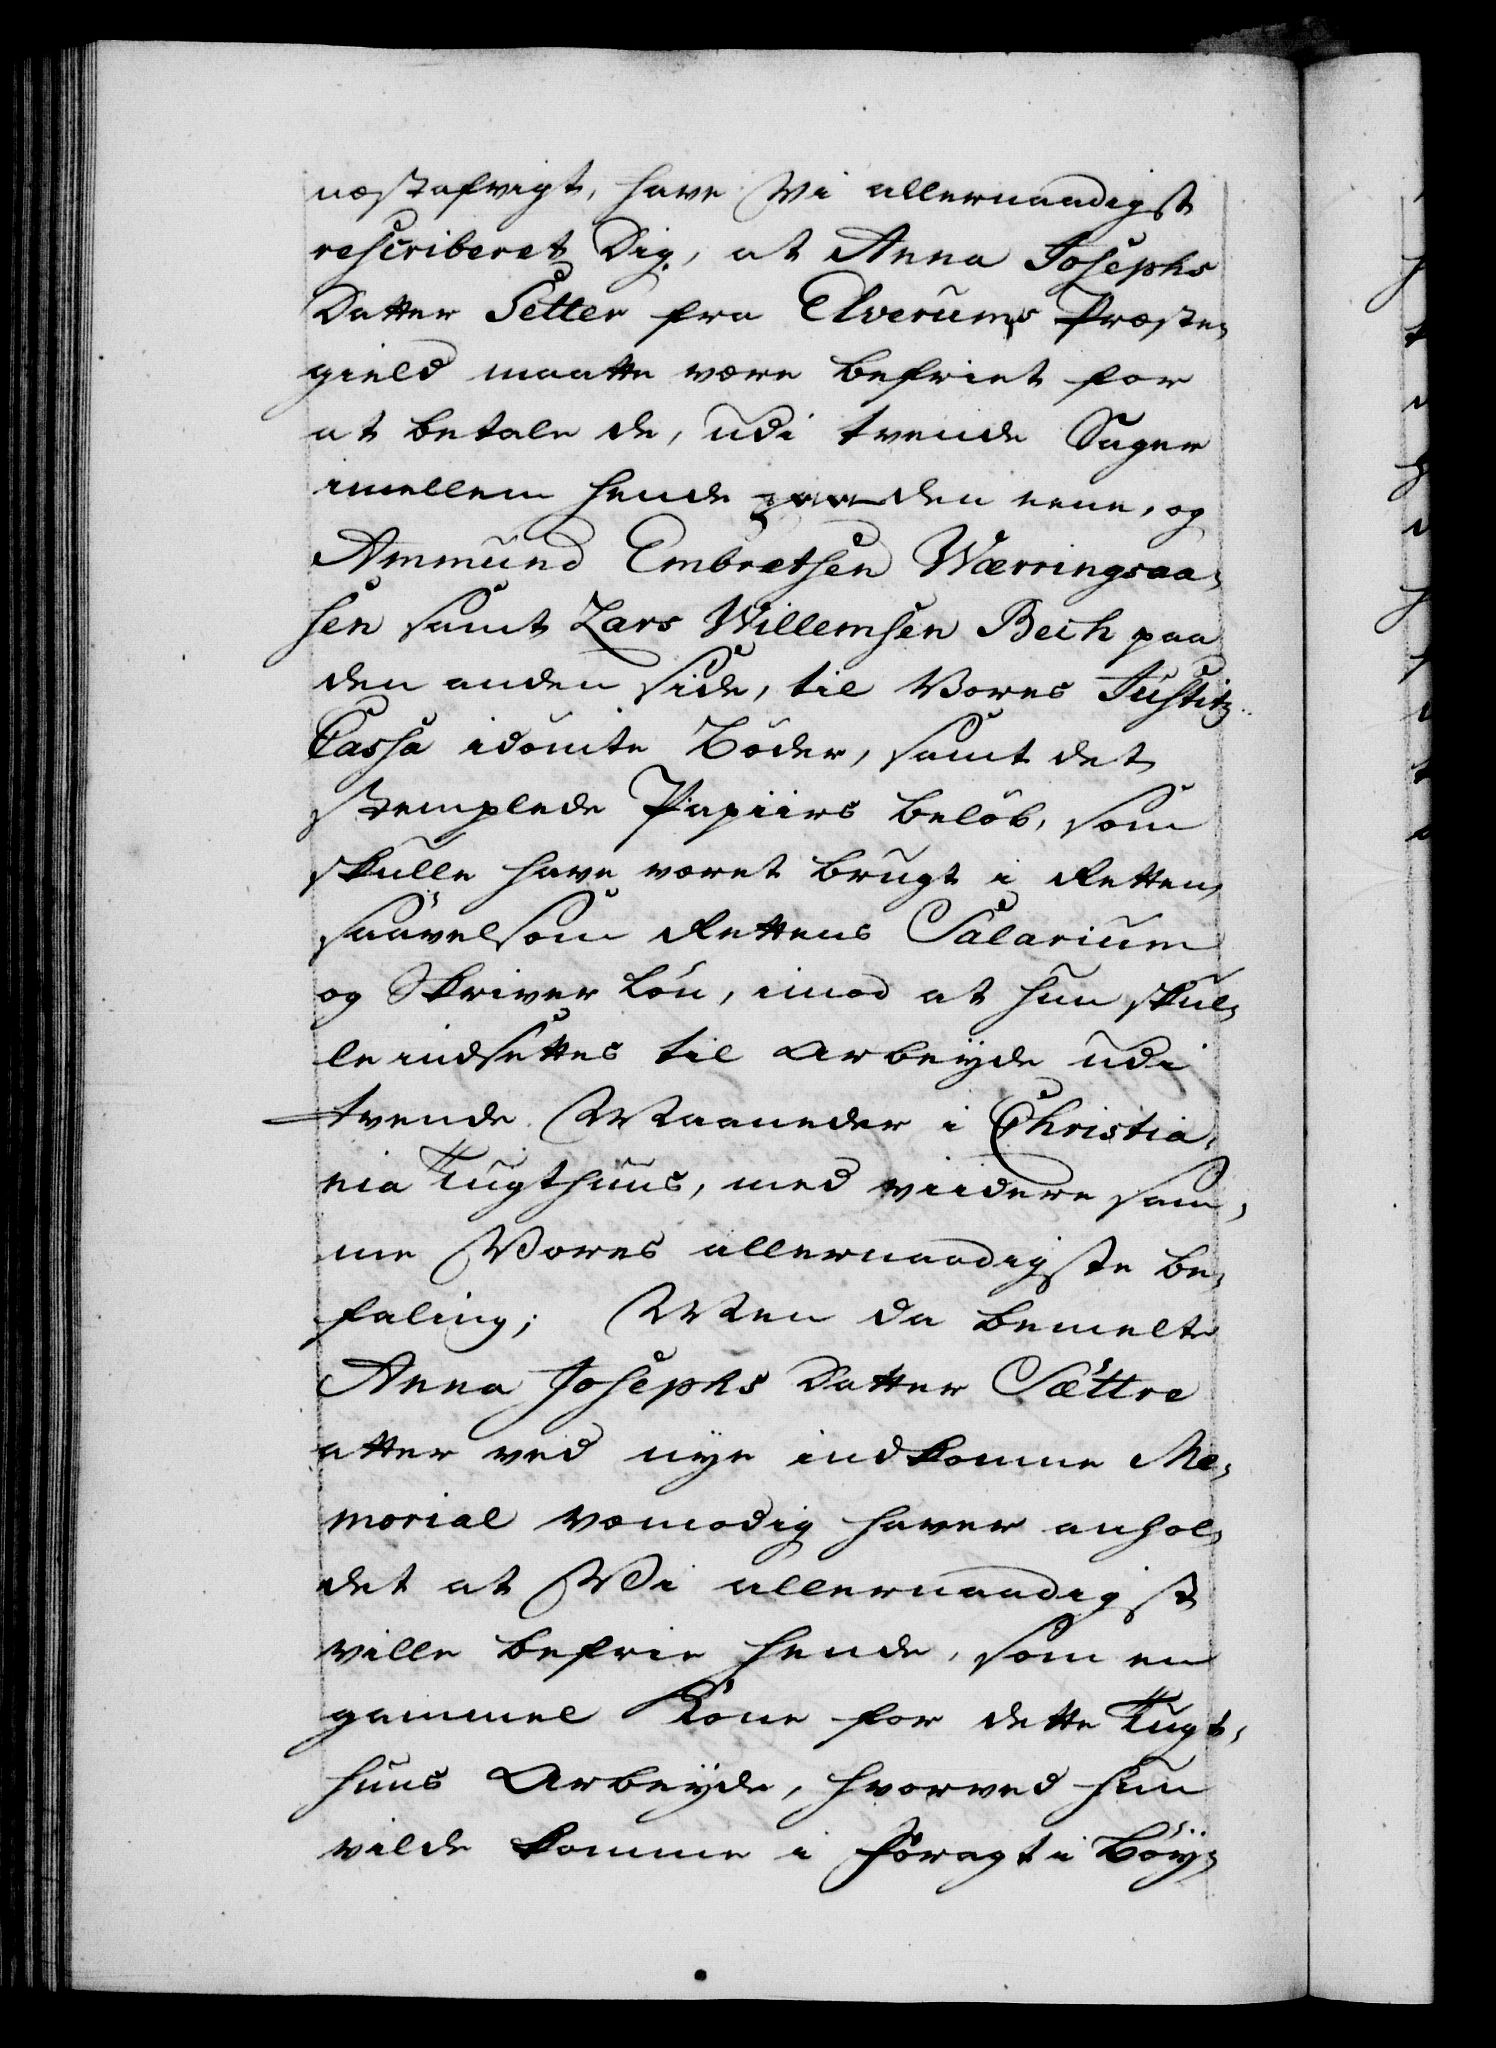 næstafvigt, have Vi allernaadigst
rescriberet Dig, at Anna Josephs
Datter Setter fra Elverums Præste,
gield maatte være befriet for
at betale de, udi tvende Sager
imellem hende paa den eene, og
Ammund Embretsen Wærringsaa,
sen samt Lars Willemsen Bech paa
den anden side, til Vores Justitz
Cassa idömte Böder, samt det
stemplede Papiirs belöb, som
skulle have været brugt i Retten,
saavelsom Rettens Salarium
og Skriver lön, imod at hun skul,
le indsettes til Arbeyde udi
tvende Maaneder i Christia,
nia Tugthuus, med viidere sam,
me Vores allernaadigste be,
faling; Men da bemelte
Anna Josephs Datter Sættre
atter ved nye indkomne Me,
morial vemodig haver anhol,
det at Vi allernaadigst
ville befrie hende, som en
gammel Kone for dette Tugt,
huus Arbeyde, hvorved hun
vilde komme i foragt i Böy,